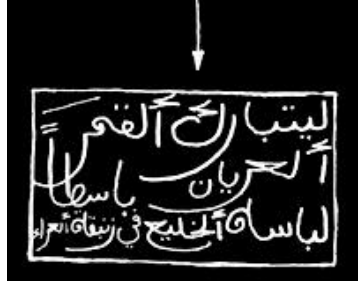 ليتبارك ألقمر
ألعريان باسطاً
لباسه ألخليع في زنبقة ألعراء